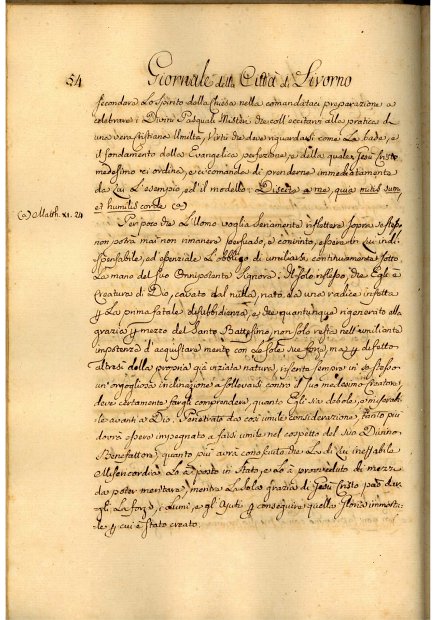 54
Giornale della Città di Livorno
secondare Lo Spirito della Chiesa nella comandataci preparazione a
celebrare i Divini Pasquali Misteri che coll'eccitarvi alla pratica di
una vera Cristiana Umiltà, Virtù che deve riguardarsi come La base, e
il fondamento della Evangelica perfezione, e della quale Gesù Cristo
medesimo ci ordina, e ci comanda di prenderne immediatamente
da Lui L'esempio, ed il modello: Discite a me, quia mitis sum,
et humilis corde (a)
(a) Matth. XI. 29
Per poco che L'Uomo voglia seriamente riflettere sopra se stesso
non potrà mai non rimanere persuaso, e convinto, essere in Lui indi-
spensabile, ed essenziale L'obbligo di umiliarsi continuamente sotto
La mano del suo Onnipotente Signore. Il solo riflesso, che Egli è
Creatura di Dio, cavato dal nulla, nato da una radice infetta
p La prima fatale disubbidienza, e che quantunque rigenerato alla
grazia p mezzo del Santo Battesimo, non solo resta nell'umiliante
impotenza d'acquistare merito con Le sole sue forze, ma p difetto
altresì della propria già viziata natura, risenta sempre in se stesso
un'orgogliosa inclinazione a sollevarsi contro il suo medesimo Creatore,
deve certamente fargli comprendere, quanto Egli sia debole, e miserabi-
le avanti a Dio. Penetrato da così umile considerazione, tanto più
dovrà essere impegnato a farsi umile nel cospetto del suo Divino
Benefattore, quanto più avrà conosciuto che La di Lui ineffabile
Misericordia Lo à posto in stato, e Lo à provveduto di mezzi
da poter meritare, mentre La sola grazia di Gesù Cristo può dar-
gli La forza, i Lumi, e gl'Ajuti p conseguire quella Gloria immorta-
le p cui è stato creato.